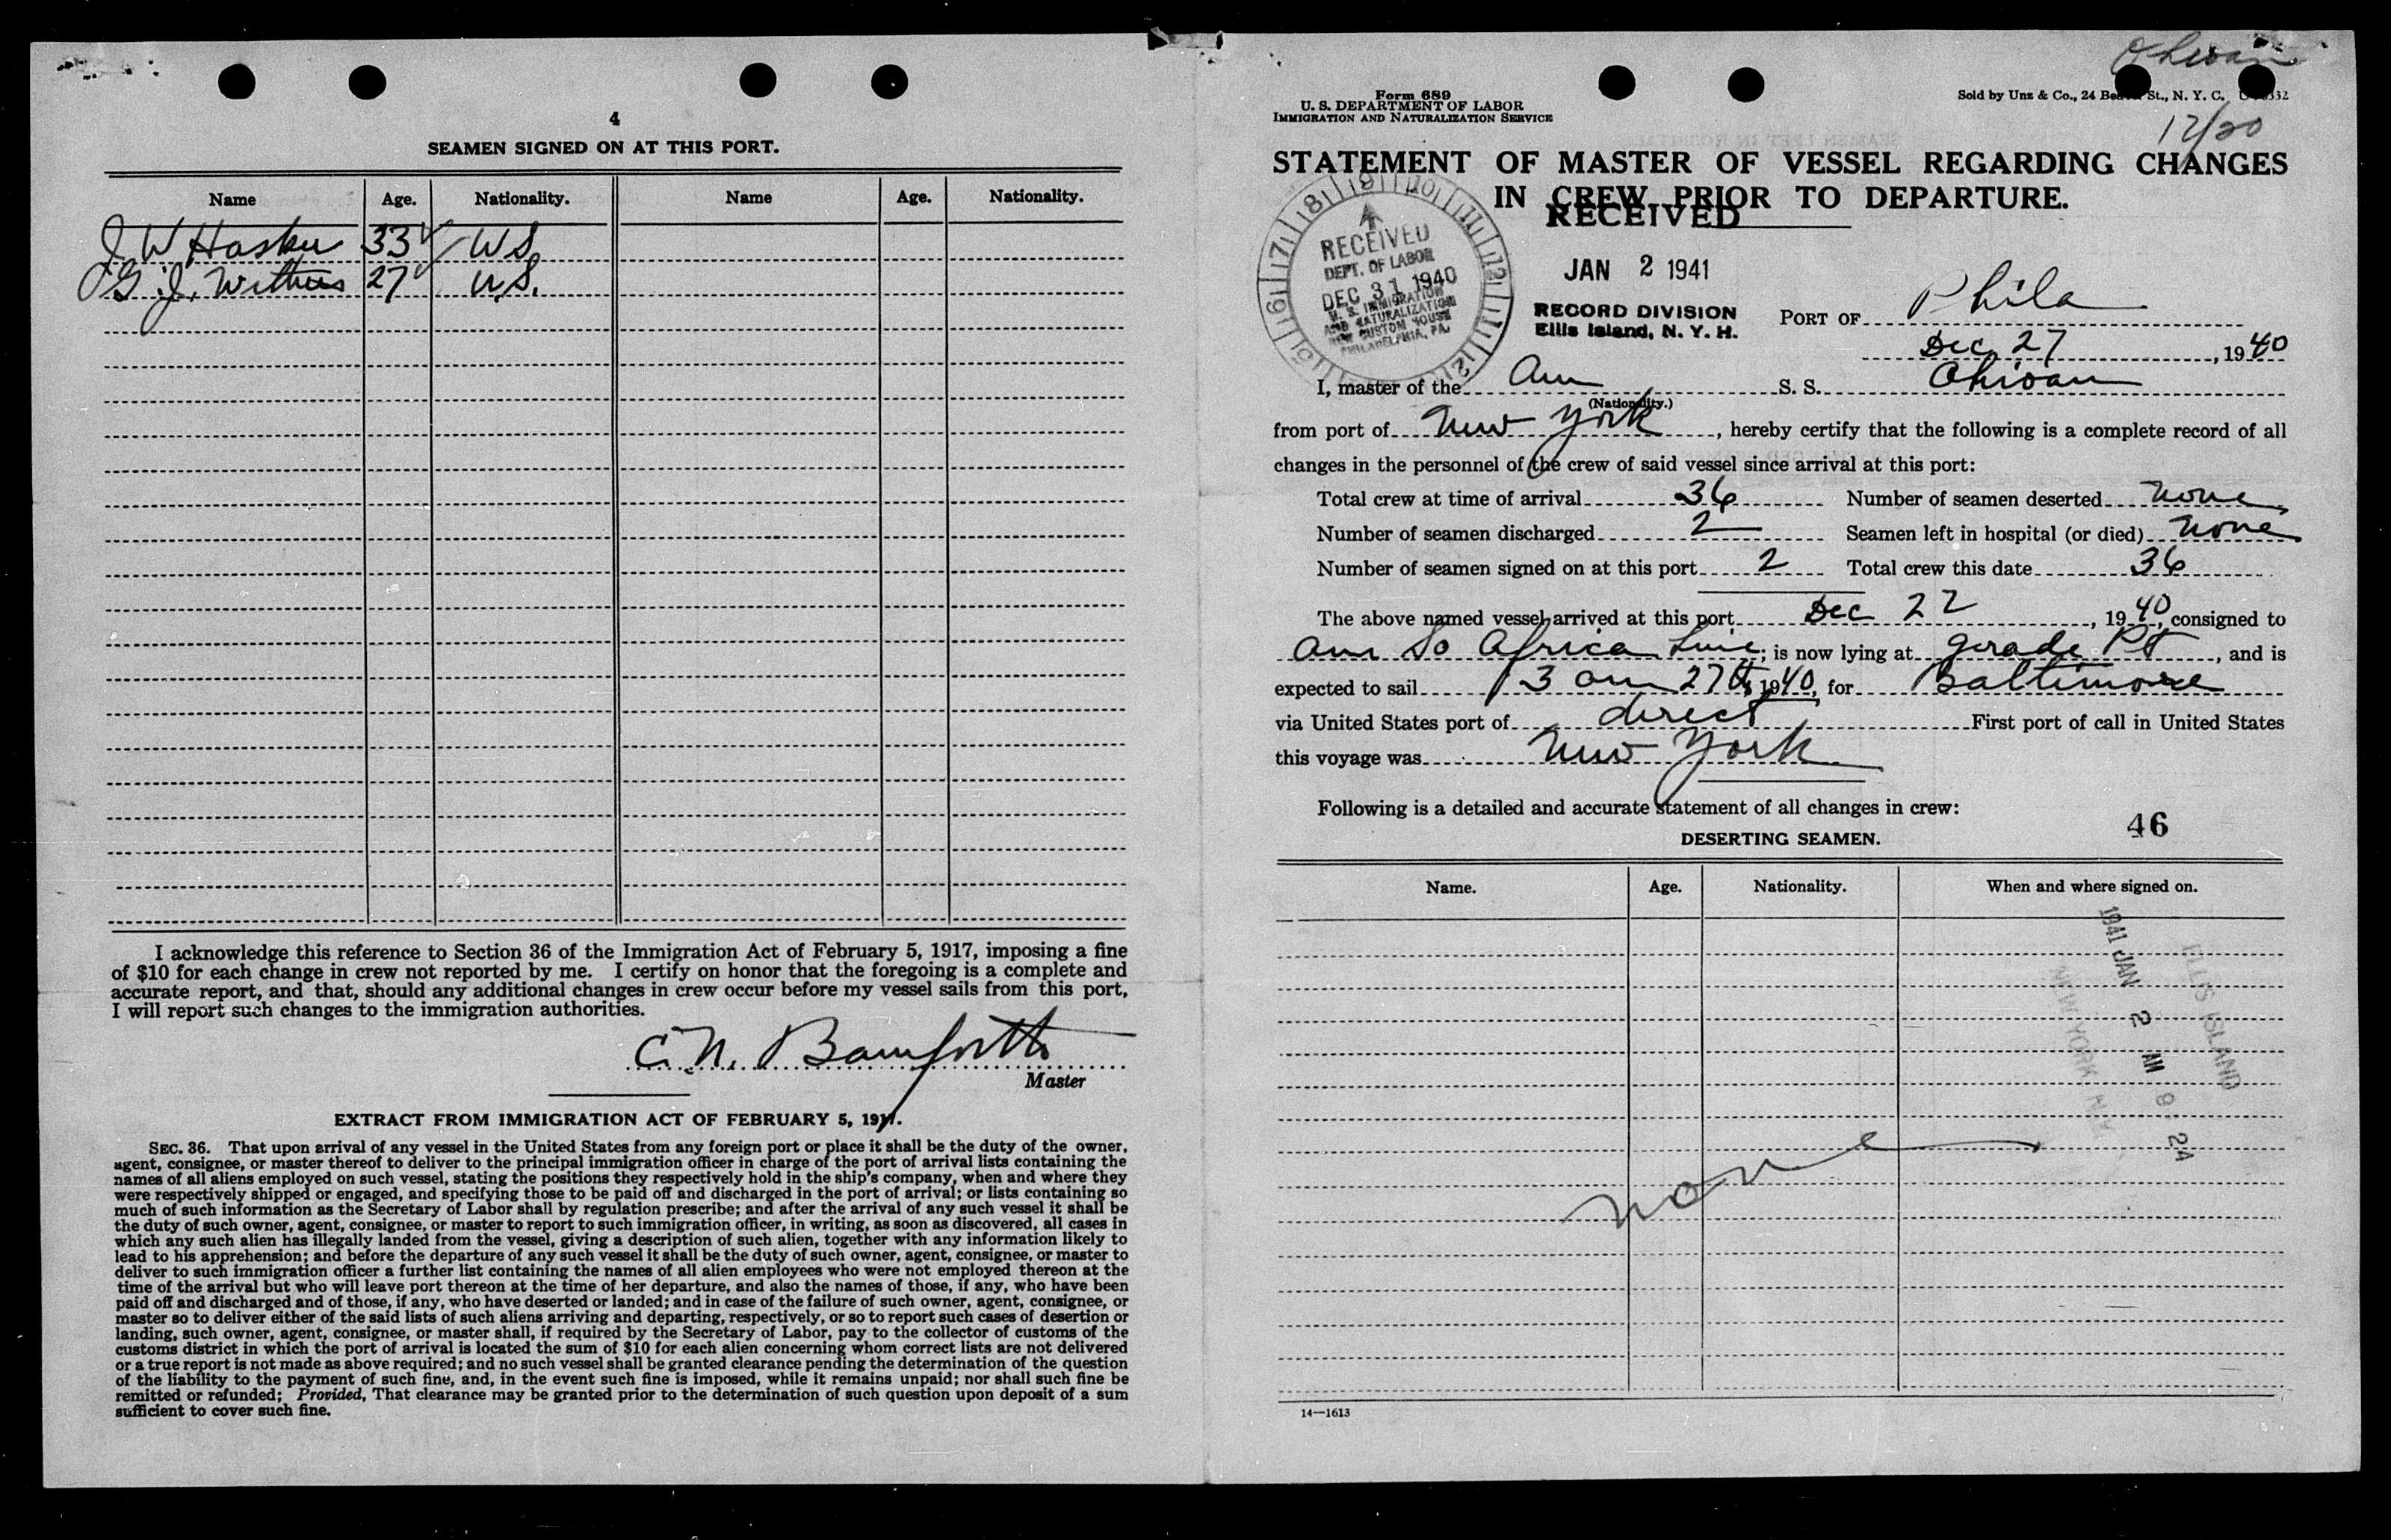 4
SEAMEN SIGNED ON AT THIS PORT.
Name Age. Nationality. Name Age. Nationality.
J W 33 U S.
G. J. Withers 27 U.S.
I acknowledge this reference to Section 36 of the Immigration Act of February 5, 1917, imposing a fine
of $10 for each change in crew not reported by me. I certify on honor that the foregoing is a complete and
accurate report, and that, should any additional changes in crew occur before my vessel sails from this port,
I will report such changes to the immigration authorities.
C. N. Bamforth
Master
EXTRACT FROM IMMIGRATION ACT OF FEBRUARY 5, 1917.
SEC. 36. That upon arrival of any vessel in the United States from any foreign port or place it shall be the duty of the owner,
agent, consignee, or master thereof to deliver to the principal immigration officer in charge of the port of arrival lists containing the
names of all aliens employed on such vessel, stating the positions they respectively hold in the ship's company, when and where they
were respectively shipped or engaged, and specifying those to be paid off and discharged in the port of arrival; or lists containing so
much of such information as the Secretary of Labor shall by regulation prescribe; and after the arrival of any such vessel it shall be
the duty of such owner, agent, consignee, or master to report to such immigration officer, in writing, as soon as discovered, all cases in
which any such alien has illegally landed from the vessel, giving a description of such alien, together with any information likely to
lead to his apprehension; and before the departure of any such vessel it shall be the duty of such owner, agent, consignee, or master to
deliver to such immigration officer a further list containing the names of all alien employees who were not employed thereon at the
time of the arrival but who will leave port thereon at the time of her departure, and also the names of those, if any, who have been
paid off and discharged and of those, if any, who have deserted or landed; and in case of the failure of such owner, agent, consignee, or
master so to deliver either of the said lists of such aliens arriving and departing, respectively, or so to report such cases of desertion or
landing, such owner, agent, consignee, or master shall, if required by the Secretary of Labor, pay to the collector of customs of the
customs district in which the port of arrival is located the sum of $10 for each alien concerning whom correct lists are not delivered
or a true report is not made as above required; and no such vessel shall be granted clearance pending the determination of the question
of the liability to the payment of such fine, and, in the event such fine is imposed, while it remains unpaid; nor shall such fine be
remitted or refunded; Provided, That clearance may be granted prior to the determination of such question upon deposit of a sum
sufficient to cover such fine.
Ohioan
Form 689
U. S. DEPARTMENT OF LABOR
IMMIGRATION AND NATURALIZATION SERVICE
Sold by Unz & Co., 24 Beaver St., N. Y. C.
12/20
STATEMENT OF MASTER OF VESSEL REGARDING CHANGES
IN CREW PRIOR TO DEPARTURE.
RECEIVED
JAN 2 1941
RECORD DIVISION
Ellis Island, N. Y. H.
RECEIVED
DEPT. OF LABOR
DEC 31 1940
U. S. IMMIGRATION
AND NATURALIZATION
NEW CUSTOM HOUSE
PHILADELPHIA, PA.
PORT OF Phila
Dec 27, 1940
I, master of the Am S. S. Ohioan
(Nationality.)
from port of New York, hereby certify that the following is a complete record of all
changes in the personnel of the crew of said vessel since arrival at this port:
Total crew at time of arrival 36 Number of seamen deserted none
Number of seamen discharged 2 Seamen left in hospital (or died) none
Number of seamen signed on at this port 2 Total crew this date 36
The above named vessel arrived at this port Dec 22, 1940, consigned to
Am So Africa Line; is now lying at Pt, and is
expected to sail 3 am 27th, 1940, for Baltimore
via United States port of direct First port of call in United States
this voyage was New York
Following is a detailed and accurate statement of all changes in crew:
46
DESERTING SEAMEN.
Name. Age. Nationality. When and where signed on.
1941 JAN 2 AM 9 24
ELLIS ISLAND
NEW YORK N.Y.
none
14—1613